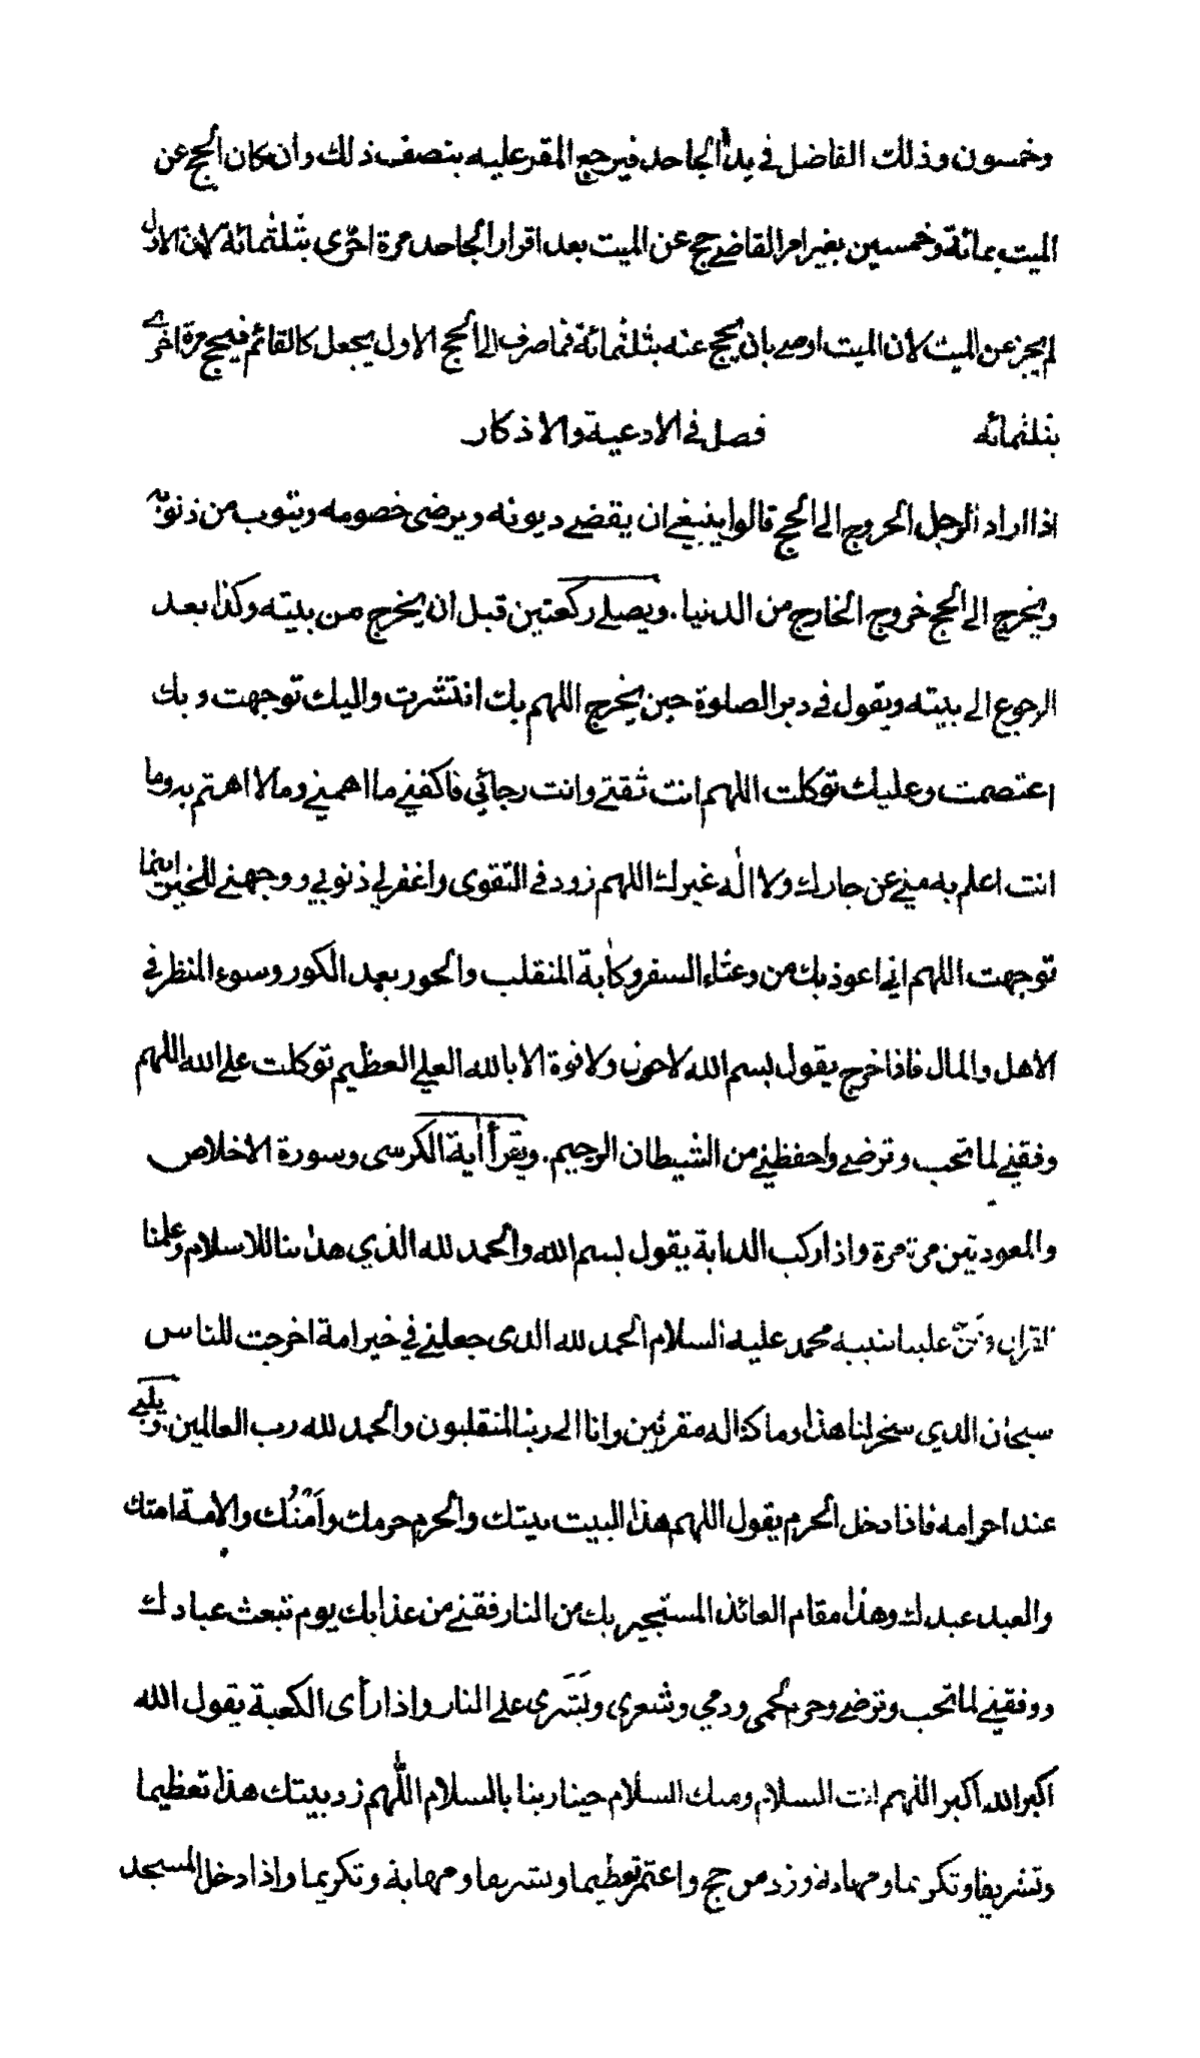 وخمسون وذلك الفاضل في يد الجاحد فيرجع المقر عليه بنصف ذلك وان كان الحج عن
الميت بمائة وخمسين بغير امر القاضي حج عن الميت بعد اقرار الجاحد مرة اخرى بثلثمائة لان الاول
لم يجز عن الميت لان الميت اوصى بان يحج عنه بثلثمائة فما صرف الى الحج الاول يجعل كالقائم فيحج مرة اخرى
بثلثمائه فصل في الادعية والاذكار
اذا اراد الرجل الخروج الى الحج قالوا ينبغي ان يقضي ديونه ويرضى خصومه ويتوب من ذنوبه
ويخرج الى الحج خروج الخارج من الدنيا . ويصلي ركعتين قبل ان يخرج من بيته وكذا بعد
الرجوع الى بيته ويقول في دبر الصلوة حين يخرج اللهم بك انتشرت واليك توجهت وبك
اعتصمت وعليك توكلت اللهم انت ثقتي وانت رجائي فاكفني ما اهمني وما لا اهتم به وما
انت اعلم به مني عز جارك ولا اله غيرك اللهم زودني التقوى واغفر لي ذنوبي ووجهني للخير اينما
توجهت اللهم اني اعوذ بك من وعثاء السفر وكابة المنقلب والحور بعد الكور وسوء المنظر في
الاهل والمال فاذا خرج يقول بسم الله لا حول ولا قوة الا بالله العلي العظيم توكلت على الله اللهم
وفقني لما تحب وترضى واحفظني من الشيطان الرجيم . ويقرأ اية الكرسي وسورة الاخلاص
والمعوذتين مرة مرة واذا ركب الدابة يقول بسم الله والحمد لله الذي هدانا للاسلام وعلمنا
القران ومن علينا بنبيه محمد عليه السلام الحمد لله الذي جعلني في خير امة اخرجت للناس
سبحان الذي سخر لنا هذا وما كنا له مقرنين وانا الى ربنا لمنقلبون والحمد لله رب العالمين . ويلبي
عند احرامه فاذا دخل الحرم يقول اللهم هذا البيت بيتك والحرم حرمك وامنك والامة امتك
والعبد عبدك وهذا مقام العائذ المستجير بك من النار فقني من عذابك يوم تبعث عبادك
ووفقني لما تحب وترضى وحرم لحمي ودمي وشعري وبشري على النار واذا رأى الكعبة يقول الله
اكبر الله اكبر اللهم انت السلام ومنك السلام حينا ربنا بالسلام اللهم زد بيتك هذا تعظيما
وتشريفا وتكريما ومهابة وزد من حج واعتمر تعظيما وتشريفا ومهابة وتكريما واذا دخل المسجد